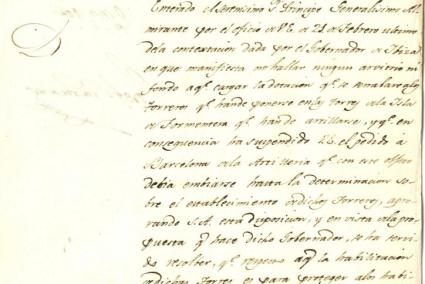 Enterado el Serenísimo Sr Príncipe Generalísimo Al-
mirante por el oficio de V.E. de 21 de Febrero ultimo
dela contextacion dada por el Gobernador de Ibiza
en que manifiesta no hallar ningun arvitrio ni
fondo aqe cargar la dotacion qe se señalare alos
Torreros qe hande ponerse enlas torres dela Isla
de Formentera qe hande artillarse, y qe en
consequencia ha suspendido V.E. el pedido à
Barcelona dela Artilleria qe con este objeto
debia embiarse hasta la determinacion so-
bre el establecimiento de dichos Torreros, apro-
vando S.A. esta disposicion, y en vista dela pro-
puesta qe hace dicho Gobernador, se ha servi-
do resolver, qe respecto aqe la habilitacion
de dichas Torres es para proteger alos habi-